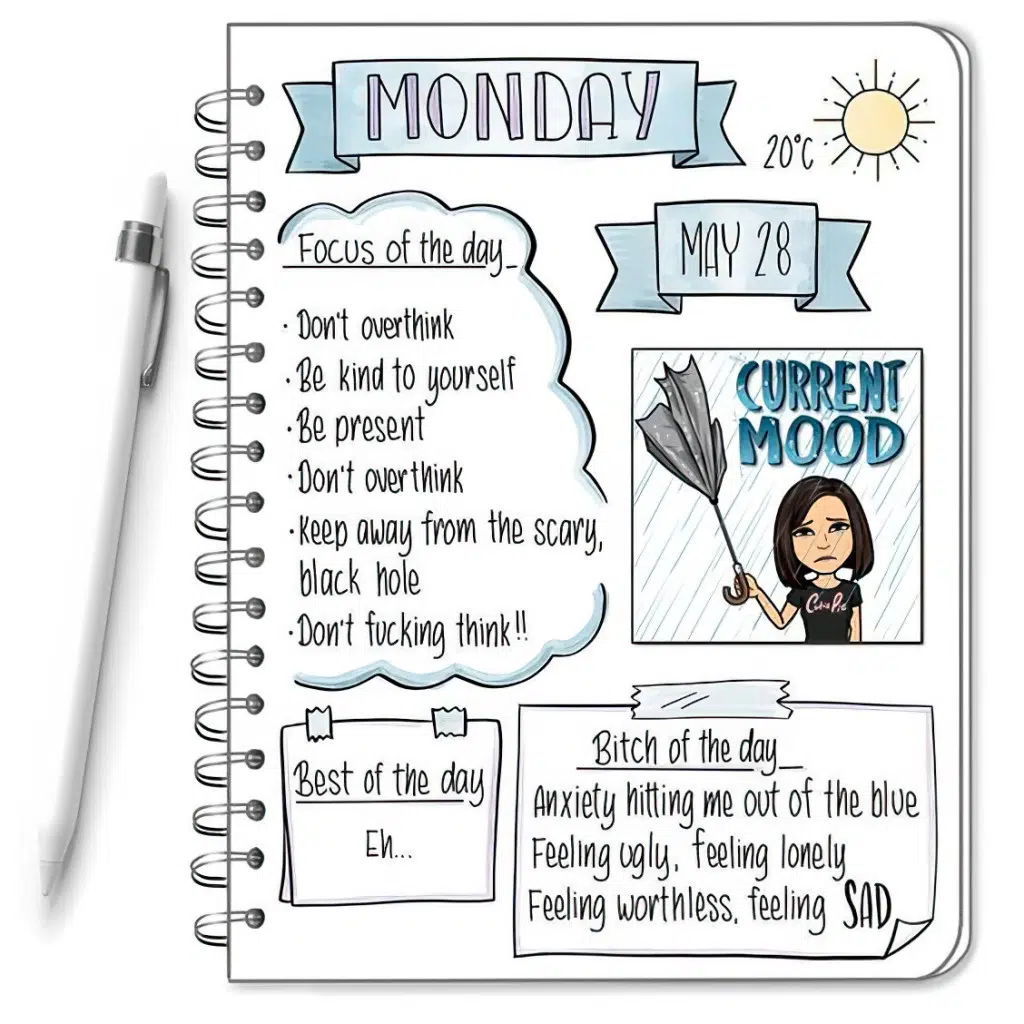 MONDAY
20°C
MAY 28
Focus of the day
· Don't overthink
· Be kind to yourself
· Be present
· Don't overthink
· Keep away from the scary,
black hole
· Don't fucking think!!
CURRENT
MOOD
Cutie Pie
Best of the day
Eh...
Bitch of the day
Anxiety hitting me out of the blue
Feeling ugly, feeling lonely
Feeling worthless, feeling SAD